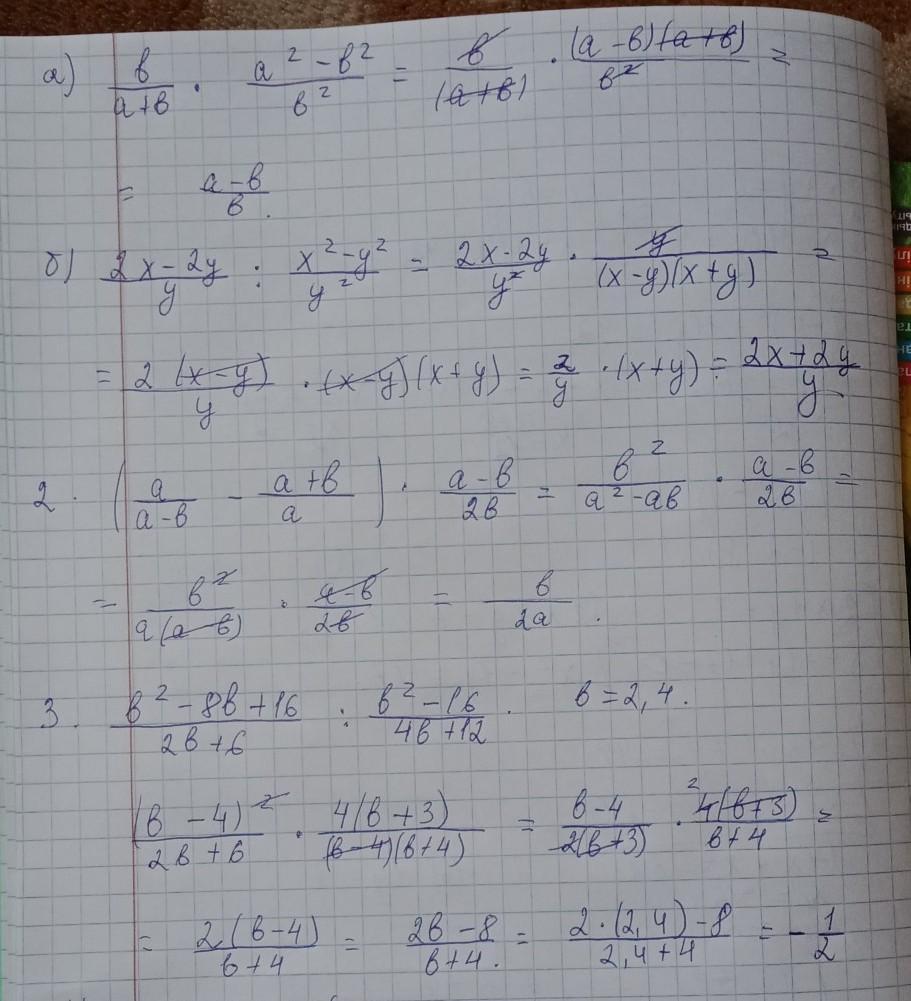 а) в/(а+в) · (а² – в²)/в² = в/(а+в) · (а – в)(а+в)/в² =
= (а – в)/в.
б) (2x – 2y)/y : (x² – y²)/y² = (2x – 2y)/y² · y/((x – y)(x + y)) =
= 2(x – y)/y · (x – y)(x + y) = 2/y · (x + y) = (2x + 2y)/y
2. (а/(а – в) – (а + в)/а) · (а – в)/2в = в²/(а² – ав) · (а – в)/2в =
= в²/(а(а – в)) · (а – в)/2в = в/2а.
3. (в² – 8в + 16)/(2в + 6) : (в² – 16)/(4в + 12). в = 2,4.
(в – 4)²/(2в + 6) · 4(в + 3)/((в – 4)(в + 4)) = (в – 4)/(2(в + 3)) · ²4(в + 3)/(в + 4) =
= 2(в – 4)/(в + 4) = (2в – 8)/(в + 4). = (2·(2,4) – 8)/(2,4 + 4) = – 1/2